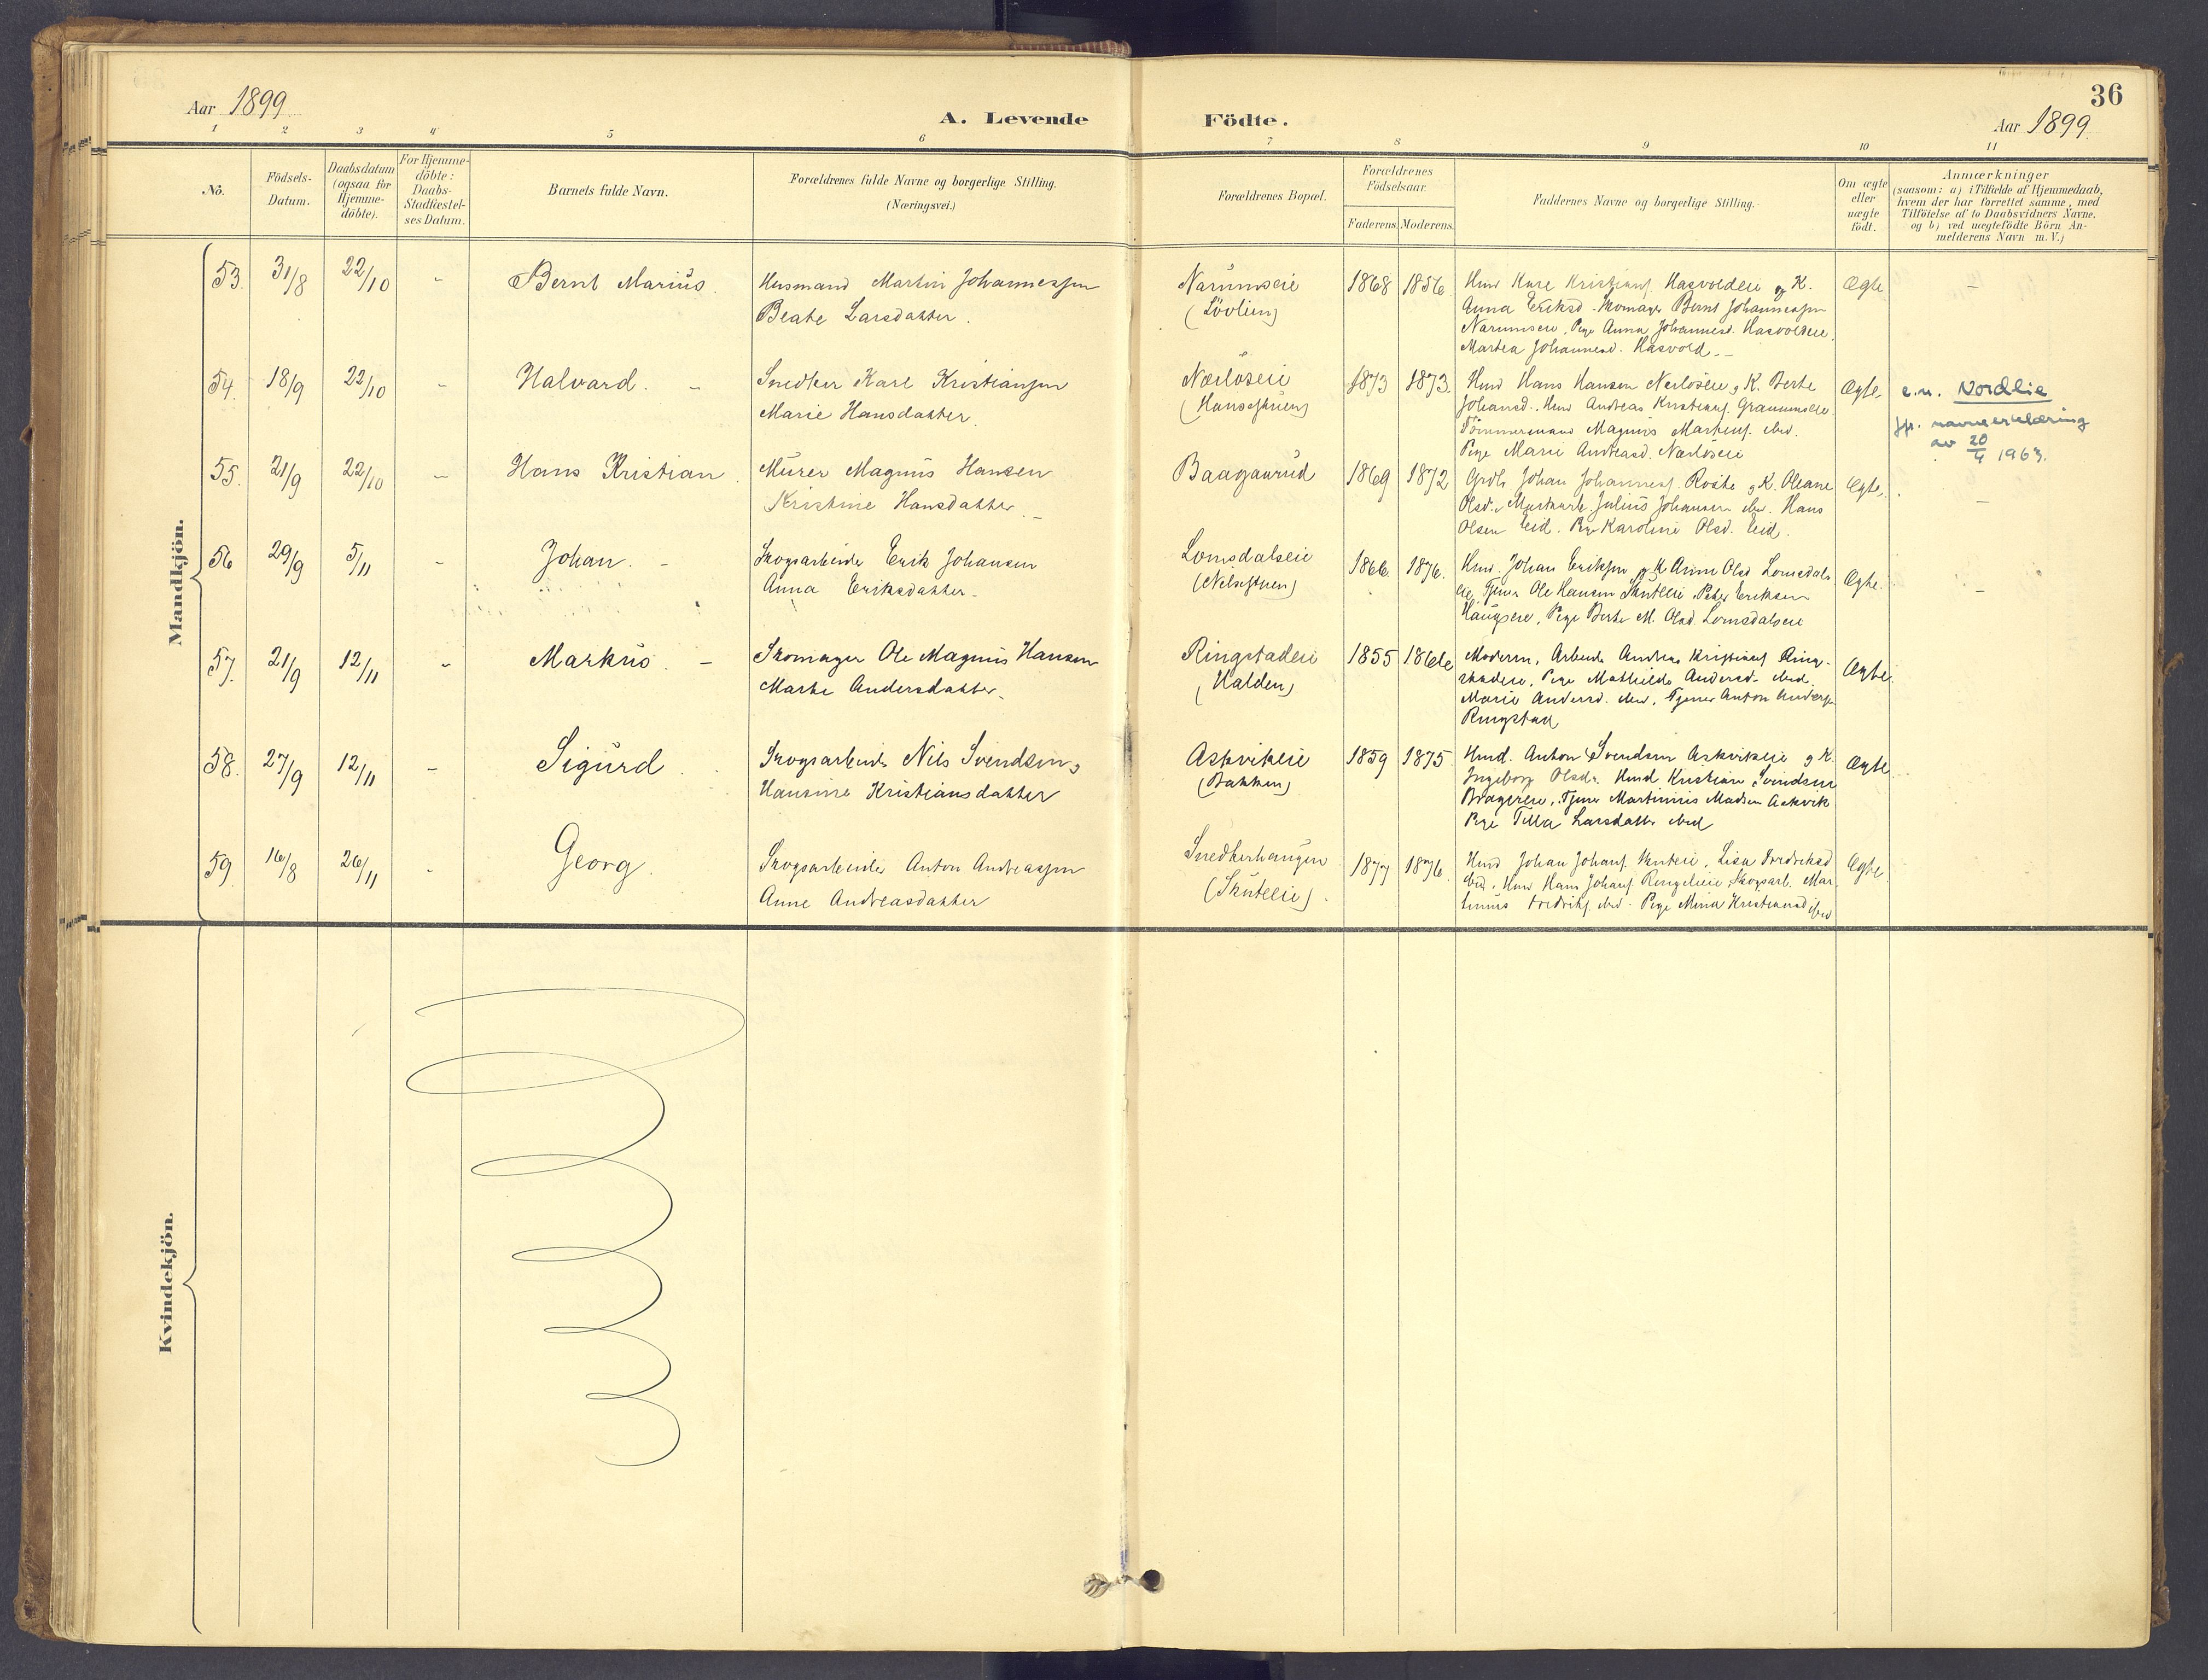 36
Aar 1899
A. Levende Födte.
Aar 1899
1 2 3 4 5 6 7 8 9 10 11
No.
Födsels-
Datum.
Daabsdatum
(ogsaa for
Hjemme-
döbte).
For Hjemme-
döbte:
Daabs-
Stadfæstel-
ses Datum.
Barnets fulde Navn.
Forældrenes fulde Navne og borgerlige Stilling.
(Næringsvei.)
Forældrenes Bopæl.
Forældrenes
Födselsaar.
Faderens. Moderens.
Faddernes Navne og borgerlige Stilling.
Om ægte
eller
uægte
födt.
Anmærkninger
(saasom: a) i Tilfælde af Hjemmedaab,
hvem der har forrettet samme, med
Tilföielse af to Daabsvidners Navne.
og b) ved uægtefödte Börn An-
melderens Navn m. V.)
Mandkjön.
53. 31/8 22/10 - Bernt Marius.
Husmand Martin Johannessen
Beate Larsdatter.
Narumseie
(Lövlien)
1868 1856
Kristians. Hasvoldeie og K.
Anna Eriksd. Skomager Bernt Johannessen
Narumseie, Pige Anna Johannesd. Hasvoldeie,
Martea Johannesd. Hasvold.-
Ægte -
54. 18/9 22/10 - Halvard. -
Snedker Karl Kristiansen
Marie Hansdatter.
Nærlöseie
(Hansestuen)
1873 1873.
Hmd Hans Hansen Nerlöseie og K. Berte
Johansd. Hmd Andreas Kristians. Graumseie
Tömmermand Magnus Martins. ibid.
Pige Marie Andreasd. Nærlöseie
Ægte.
e.n. Nordlie
jfr. navneerklæring
av 20/4 1963.
55. 21/9 22/10 - Hans Kristian.
Murer Magnus Hansen
Kristine Hansdatter. -
Baagaarud
1869 1872
Grdb. Johan Johannes. Röste og K. Oleane
Olsd., Julius Johansen ibid. Hans
Olsen Eid. Pige Karoline Olsd. Eid.
Ægte. -
56 29/9 5/11 - Johan. -
Skogsarbeider Erik Johansen
Anna Eriksdatter.
Lomsdalseie
(Nilsestuen)
1866 1876.
Hmd. Johan Eriksen og K Anne Olsd Lomsdals-
eie, Tjener Ole Hansen Skuteeie, Peter Eriksen
Haugseie, Pige Berte M. Olsd. Lomsdalseie
Ægte. -
57. 21/9 12/11 - Markus. -
Skomager Ole Magnus Hansen
Marte Andersdatter.
Ringstadeie
(Halden)
1855 1866
Moderen, Arbeider Andreas Kristians Ring-
stadeie, Pige Mathilde Andersd. ibid.
Marie Andersd. ibid, Tjener Anton Anders.
Ringstad
Ægte.
58. 27/9 12/11 - Sigurd.
Skogsarbeider Nils Svendsen,
Hansine Kristiansdatter
Askvikeie
(Bakken)
1859 1875
Hmd. Anton Svendsen Askvikeie og K.
Ingeborg Olsd. Hmd Kristian Svendsen
Tjener Martinius Madsen Askvik
Pige Tilla Larsdatter ibid
Ægte
59 16/8 26/11 - Georg.
Skogsarbeider Anton Andreassen
Anne Andreasdatter
Snedkerhaugen
(Skuteeie).
1877 1876
Hmd Johan Johans. Skuteeie, Lisa Fredriksd
ibid. Hmd Hans Johans. Ringelieie, Skogsarb. Mar-
tinius Fredriks. ibid. Pige Mina Kristiansd ibid
Ægte.
Kvindekjön.